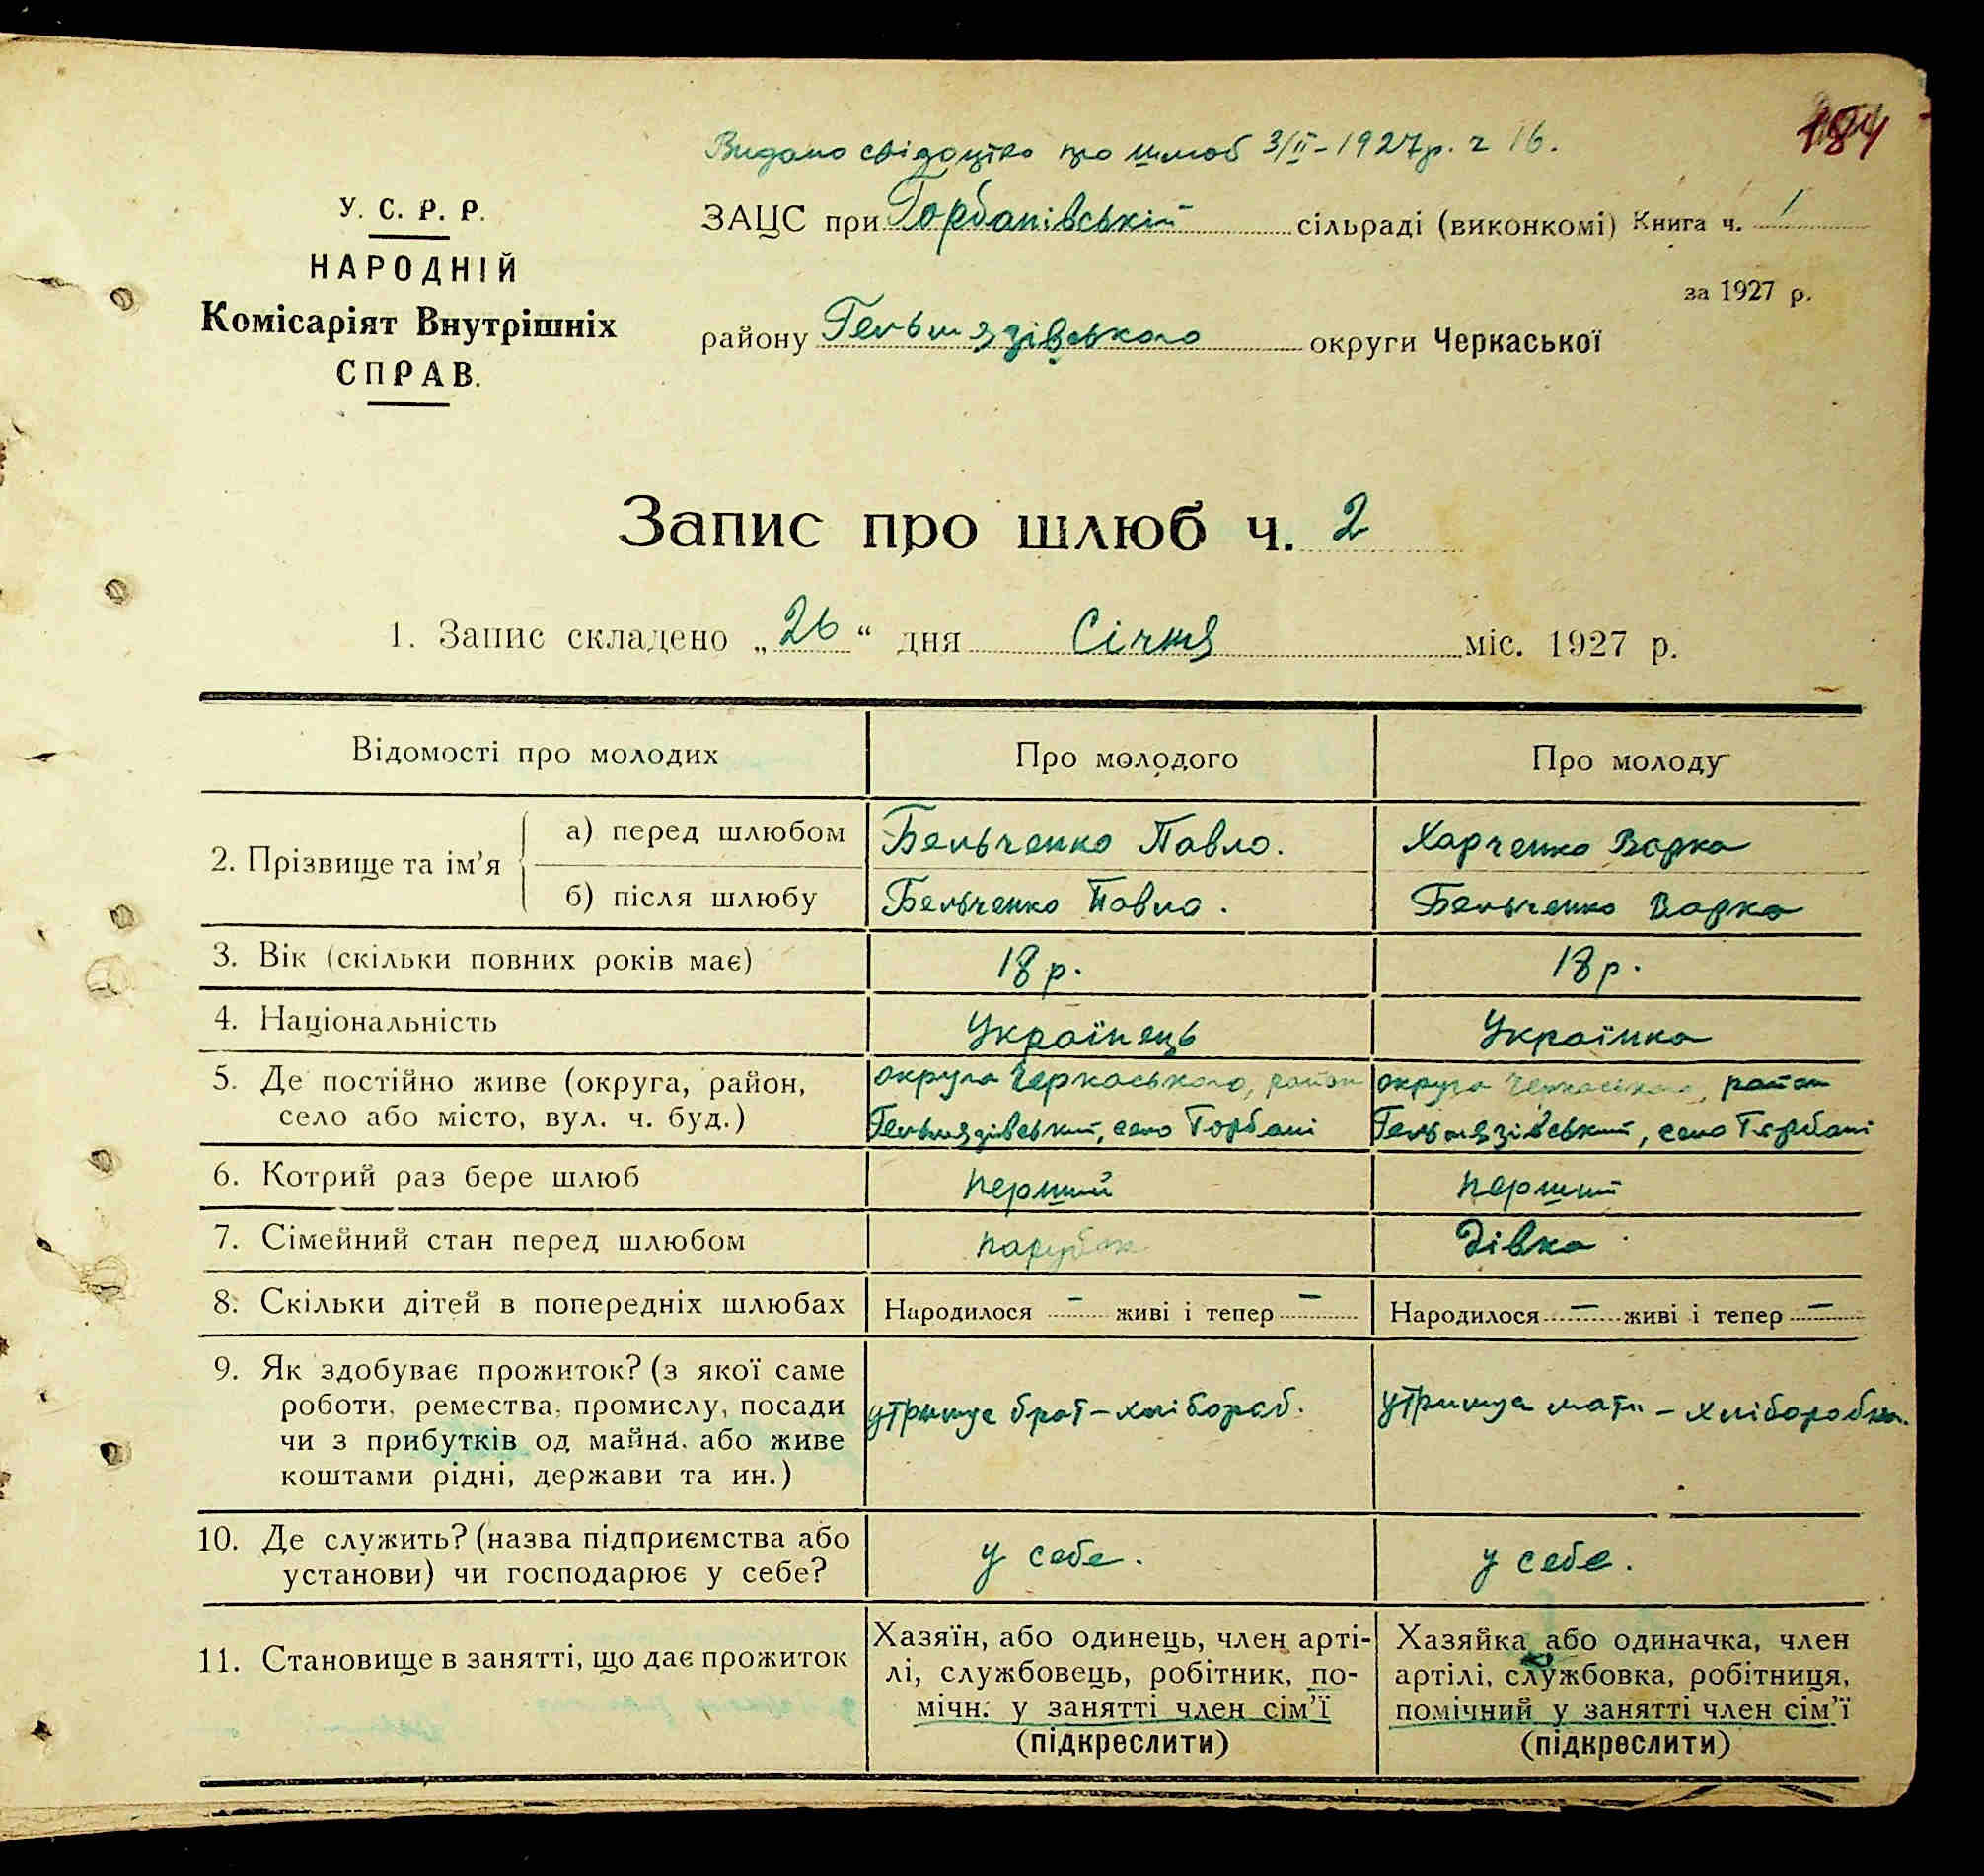 184
Видано свідоцтво про шлюб 3/II-1927р. ч 16.
У. С. Р. Р.
НАРОДНІЙ
Комісаріят Внутрішніх
СПРАВ.
ЗАЦС при Горбанівській сільраді (виконкомі) Книга ч. 1
за 1927 р.
району Гельмязівського округи Черкаської
Запис про шлюб ч. 2
1. Запис складено „26“ дня Січня міс. 1927 р.
Відомості про молодих Про молодого Про молоду
2. Прізвище та ім'я
а) перед шлюбом Бельченко Павло. Харченко Варка
б) після шлюбу Бельченко Павло. Бельченко Варка
3. Вік (скільки повних років має) 18 р. 18 р.
4. Національність Українець Українка
5. Де постійно живе (округа, район, округа Черкаського, район округа Черкаського, район
село або місто, вул. ч. буд.) Гельмязівський, село Горбані Гельмязівський, село Горбані
6. Котрий раз бере шлюб перший перший
7. Сімейний стан перед шлюбом парубок дівка
8. Скільки дітей в попередніх шлюбах Народилося - живі і тепер - Народилося - живі і тепер -
9. Як здобуває прожиток? (з якої саме
роботи, ремества, промислу, посади утримує брат-хлібороб. утримує мати - хліборобка.
чи з прибутків од майна, або живе
коштами рідні, держави та ин.)
10. Де служить? (назва підприємства або у себе. у себе.
установи) чи господарює у себе?
11. Становище в занятті, що дає прожиток
Хазяїн, або одинець, член арті-
лі, службовець, робітник, по-
мічн. у занятті член сім'ї
(підкреслити)
Хазяйка або одиначка, член
артілі, службовка, робітниця,
помічний у занятті член сім'ї
(підкреслити)